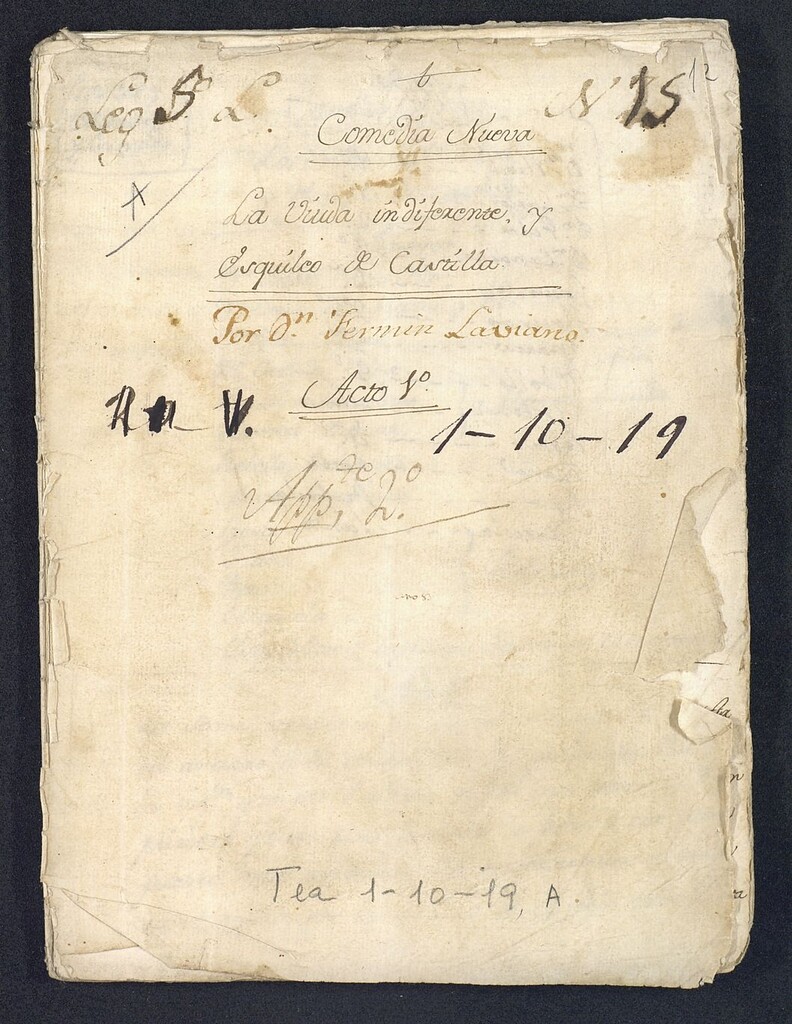 12
Leg 5 L. N 15
Comedia Nueva
X
La Viuda indiferente, y
Esquileo de Castilla.
Por Dn. Fermin Laviano.
Acto 1º
1-10-19
Appte. 2º
Tea 1-10-19, A.